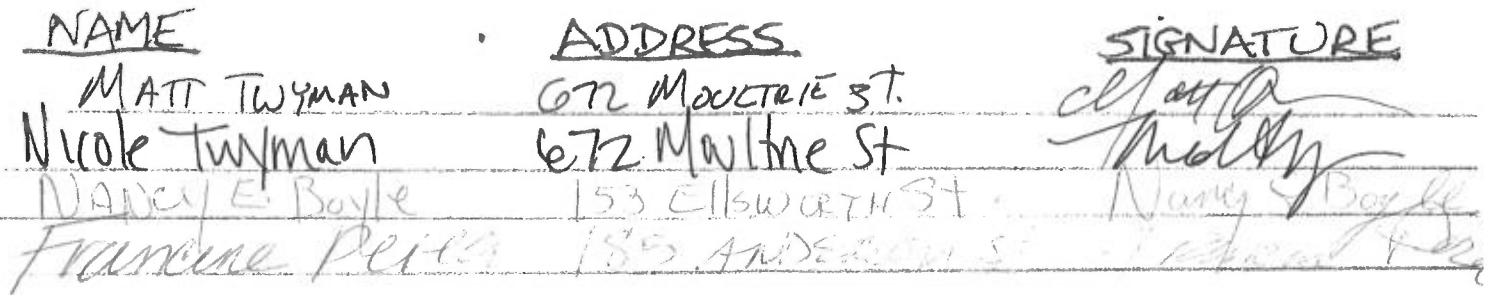 NAME ADDRESS SIGNATURE
MATT TWYMAN 672 MOULTRIE ST. Matt
Nicole Twyman 672 Moultrie St
NANCY E Boyle 153 EllSWORTH St Nancy E Boyle
Francine 185 ANDERSON